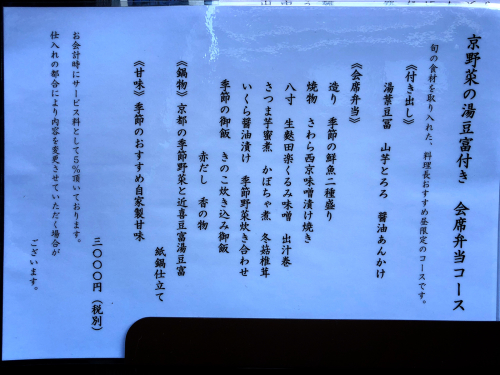 京野菜の湯豆富付き　会席弁当コース
旬の食材を取り入れた、料理長おすすめ昼限定のコースです。
《付き出し》
湯葉豆冨　山芋とろろ　醤油あんかけ
《会席弁当》
造り　季節の鮮魚二種盛り
焼物　さわら西京味噌漬け焼き
八寸　生麩田楽くるみ味噌　出汁巻
さつま芋蜜煮　かぼちゃ煮　冬菇椎茸
いくら醤油漬け　季節野菜炊き合わせ
季節の御飯　きのこ炊き込み御飯
赤だし　香の物
《鍋物》京都の季節野菜と近喜豆富湯豆富
紙鍋仕立て
《甘味》季節のおすすめ自家製甘味
三〇〇〇円（税別）
お会計時にサービス料として5％頂いております。
仕入れの都合により内容を変更させていただく場合が
ございます。